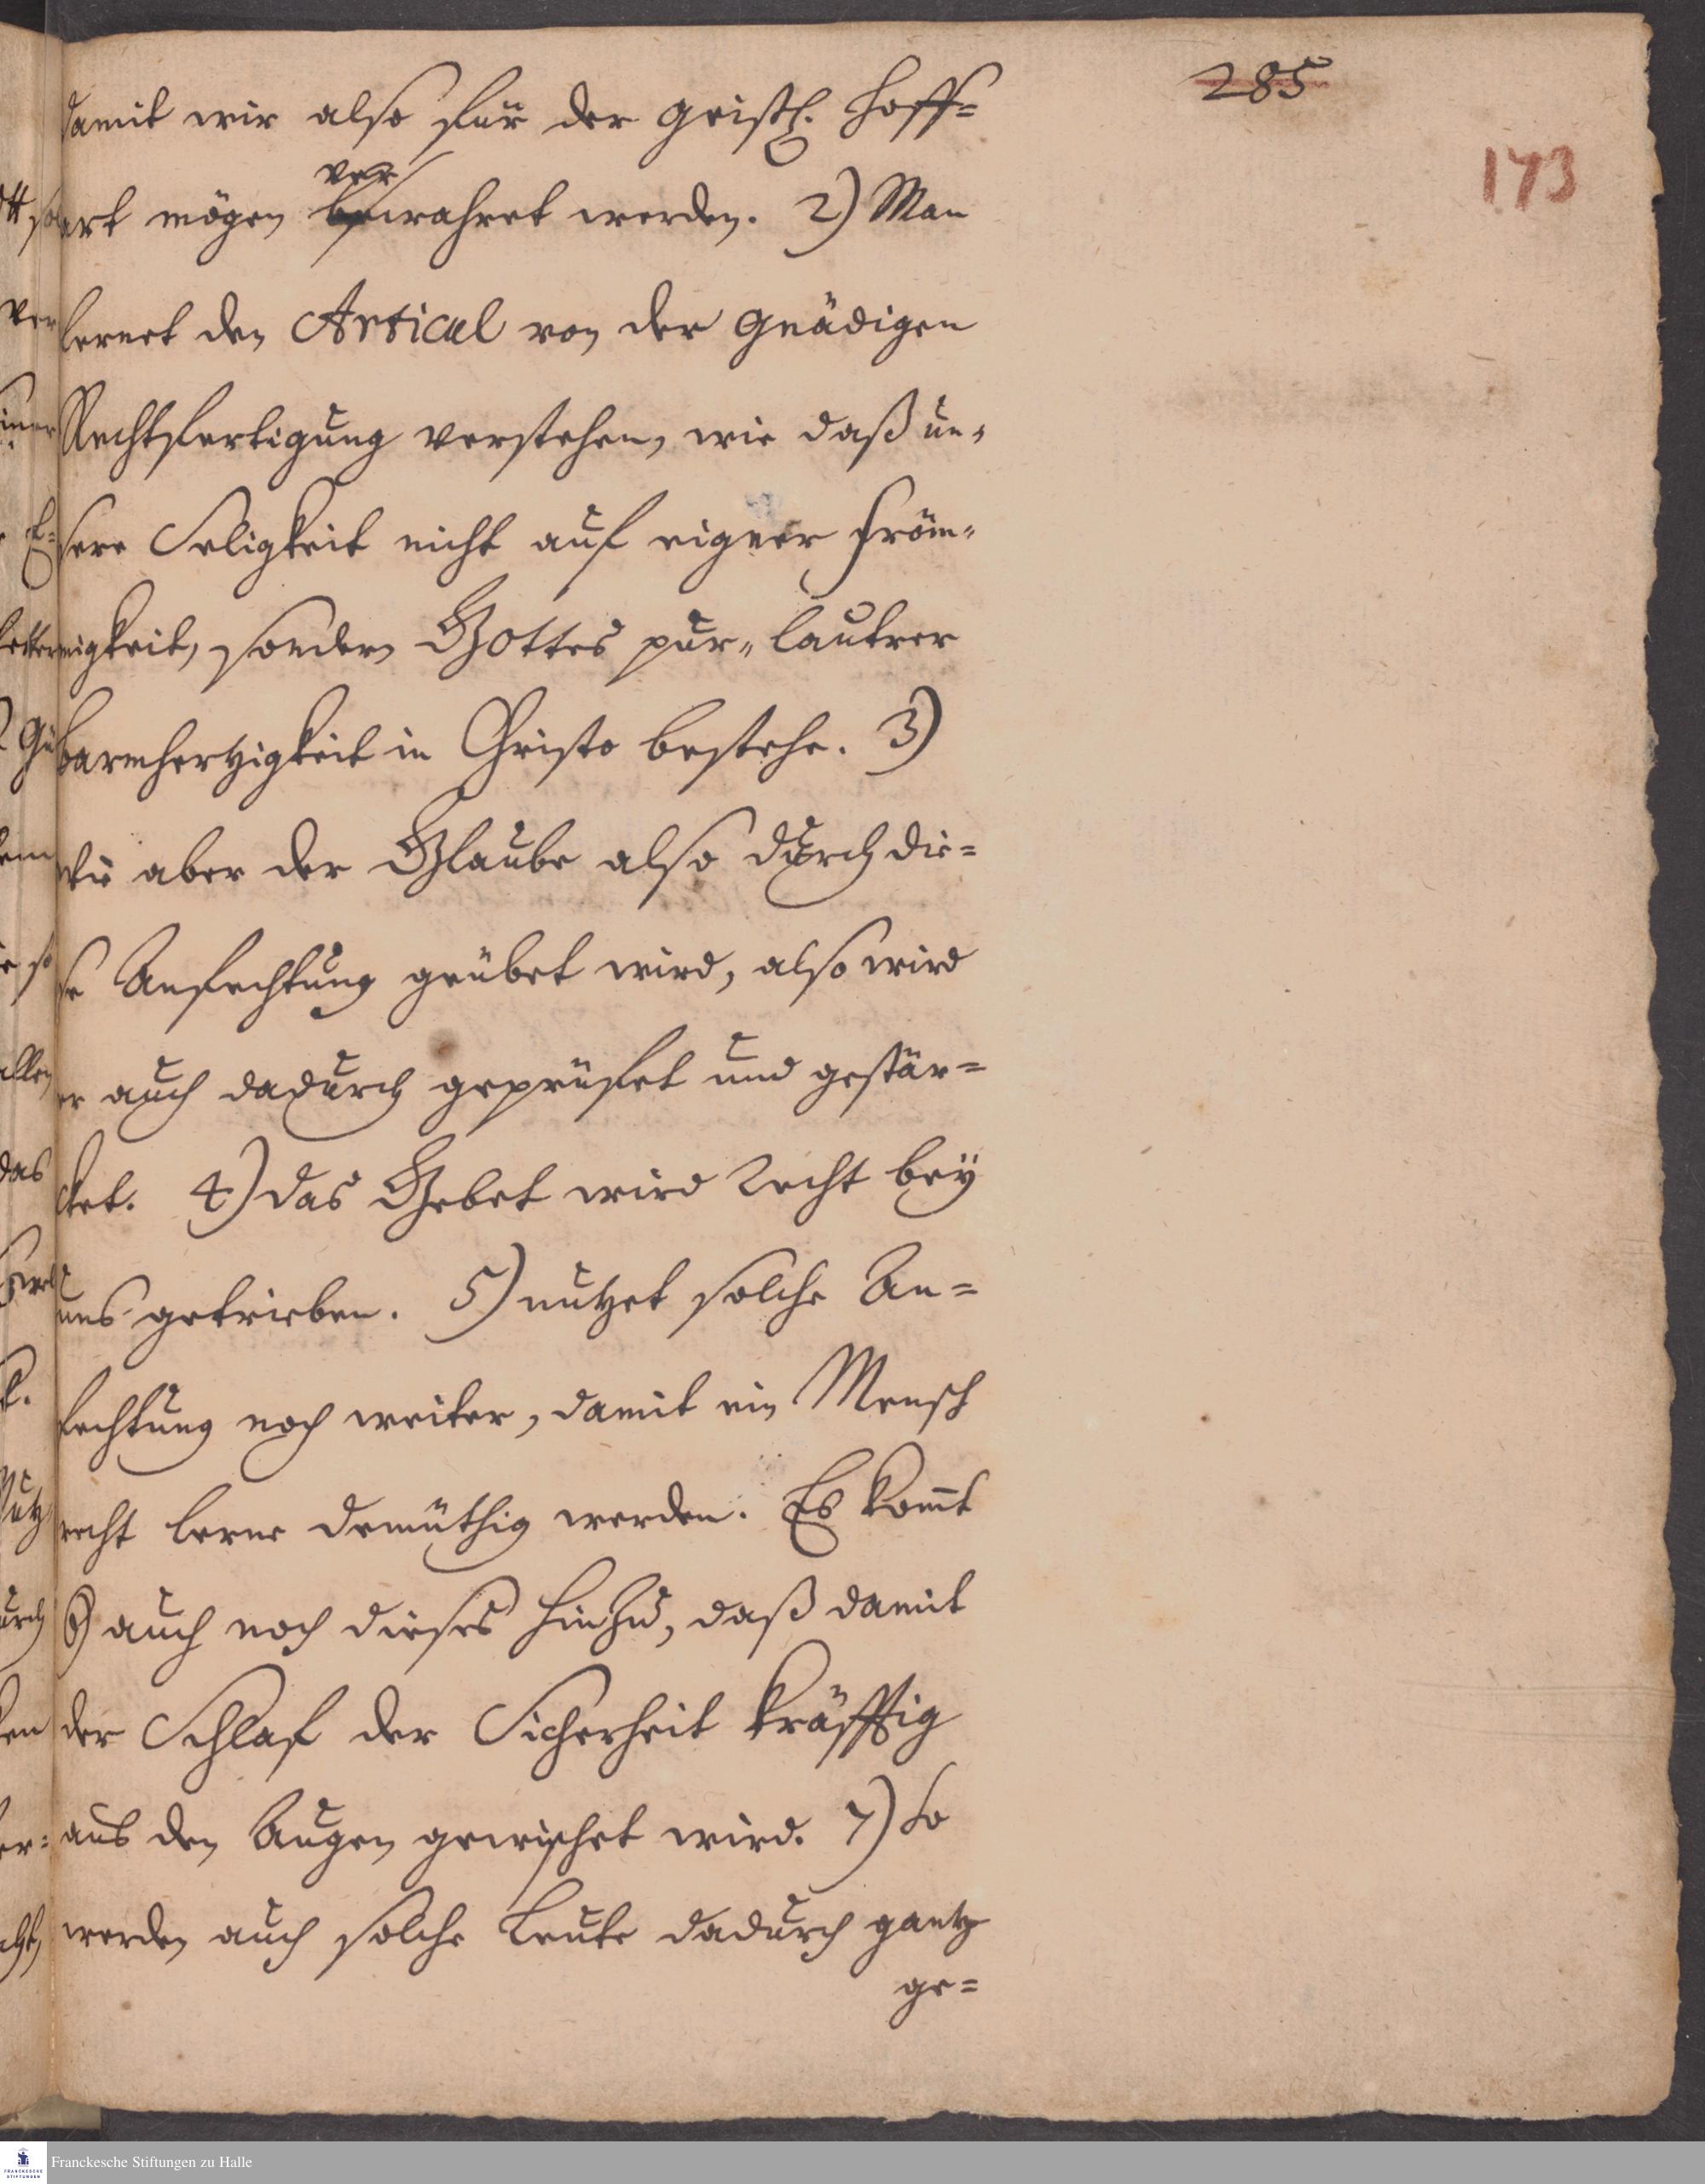 285
173
damit wir also für der geistl. Hoff=
art mögen verwahret werden. 2) Man
lernet den Articul von der gnädigen
Rechtfertigung verstehen, wie daß un=
sere Seligkeit nicht auf eigner From̅=
migkeit, sondern Gottes pur=lautrer
barmhertzigkeit in Christo bestehe. 3)
Wie aber der Glaube also durch die=
se Anfechtung geübet wird, also wird
er auch dadurch geprüfet und gestär=
cket. 4) das Gebet wird Recht bey
uns getrieben. 5) nutzet solche An=
fechtung noch weiter, damit ein Mensch
recht lerne demüthig werden. Es kom̅t
6) auch noch dieses hinzu, daß damit
der Schlaf der Sicherheit kräfftig
aus den Augen gewischet wird. 7) So
werden auch solche Leute dadurch gantz
ge=
Franckesche Stiftungen zu Halle